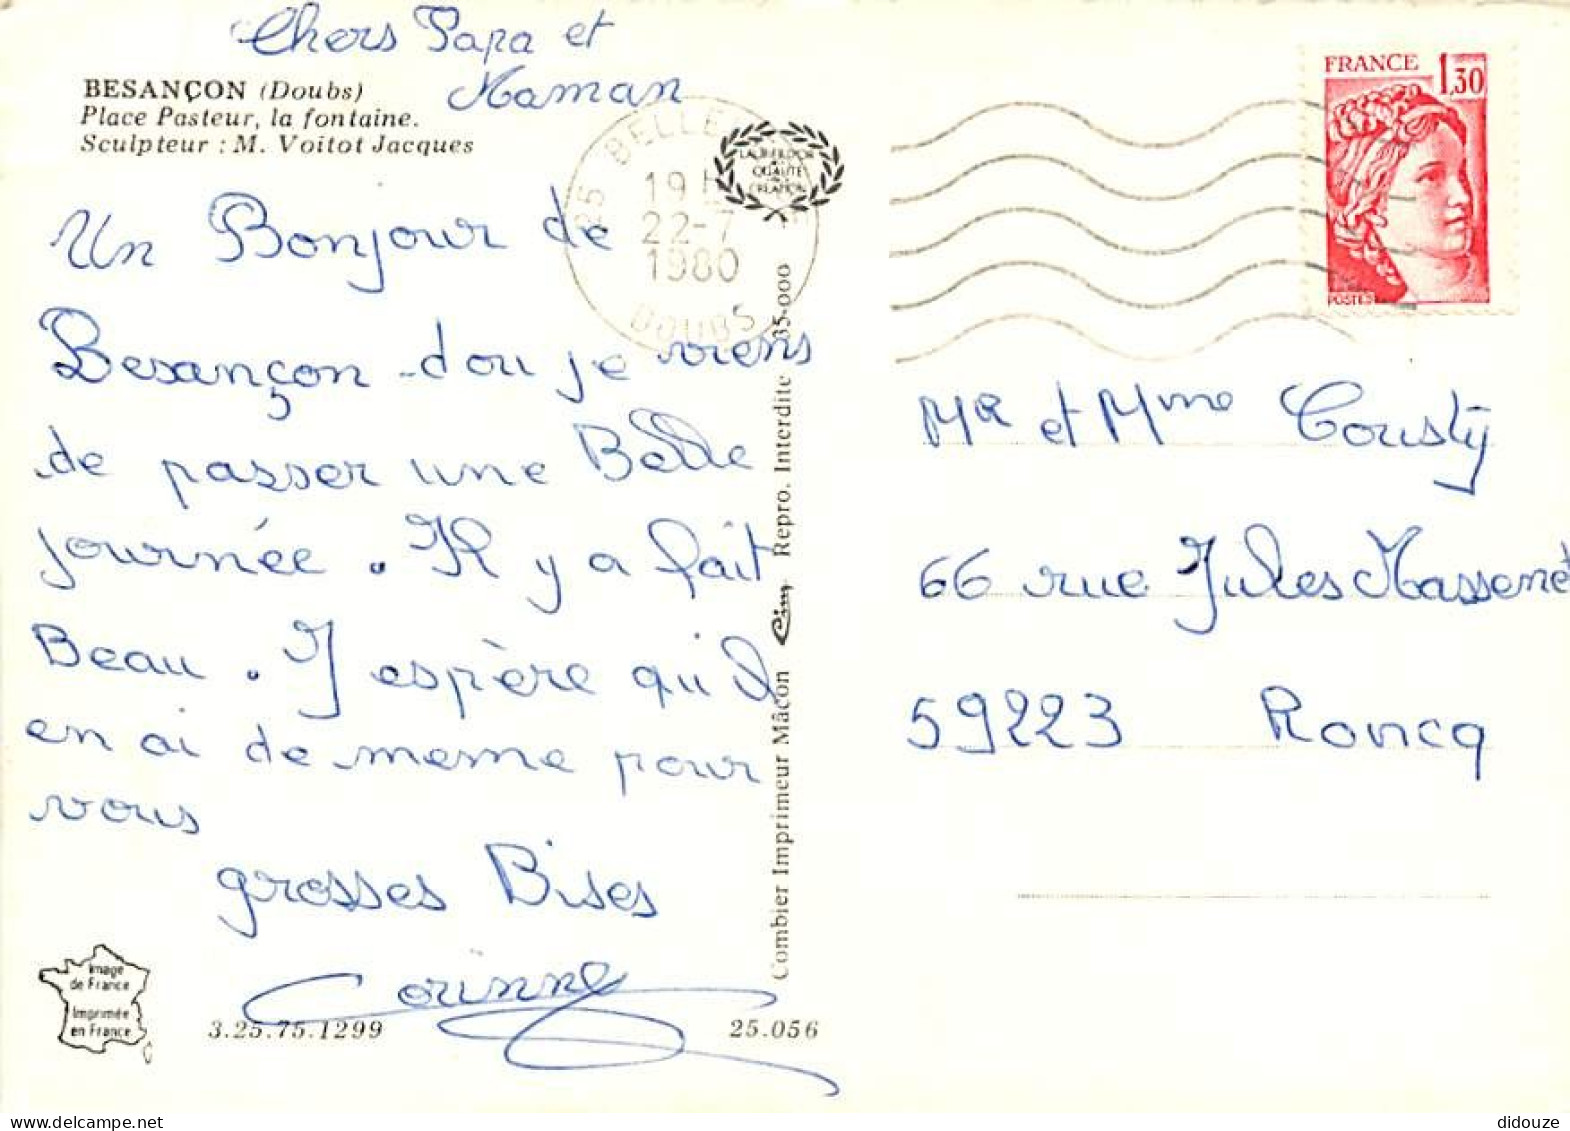 Chers Papa et
Maman
BESANÇON (Doubs)
Place Pasteur, la fontaine.
Sculpteur : M. Voitot Jacques
Un Bonjour de
Besançon d'ou je viens
de passer une Belle
journée. Il y a fait
Beau. J espère qu il
en ai de meme pour
vous
grosses Bises
Corinne
Image
de France
Imprimée
en France
3.25.75.1299
25.056
Combier Imprimeur Mâcon Cim Repro. Interdite 35-000
LAURIER D'OR
QUALITÉ
CRÉATION
25
19 H
22-7
1980
DOUBS
FRANCE 1,30
POSTES
Mr et Mme Cousty
66 rue Jules Massenet
59223 Roncq
didouze